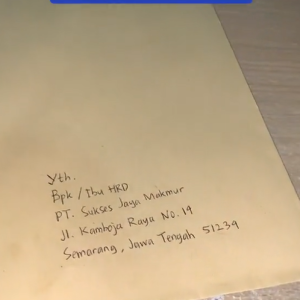 Yth.
Bpk / Ibu HRD
PT. Sukses Jaya Makmur
Jl. Kamboja Raya No. 19
Semarang, Jawa Tengah 51239